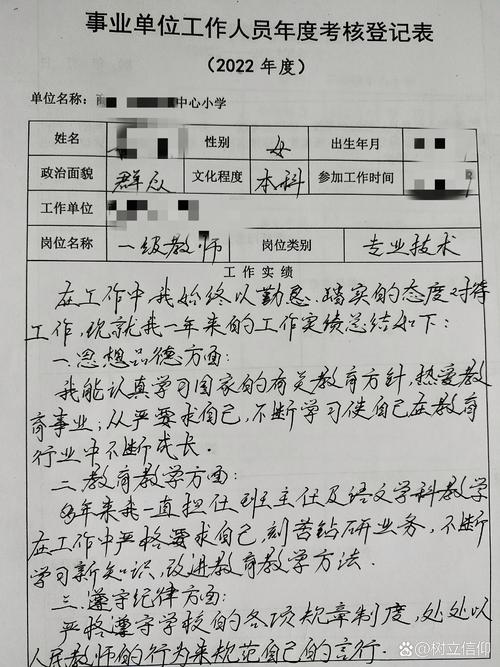 事业单位工作人员年度考核登记表
（2022 年度）
单位名称：中心小学
姓名 性别 女 出生年月
政治面貌 群众 文化程度 本科 参加工作时间
工作单位
岗位名称 一级教师 岗位类别 专业技术
工作实绩
在工作中我始终以勤恳、踏实的态度对待
工作，现就我一年来的工作实绩总结如下：
一.思想品德方面：
我能认真学习国家的有关教育方针，热爱教
育事业；从严要求自己，不断学习使自己在教育
行业中不断成长.
二.教育教学方面：
年来我一直担任班主任及语文学科教学
在工作中严格要求自己，刻苦钻研业务，不断
学习新知识，改进教育教学方法.
三.遵守纪律方面：
严格遵守学校的各项规章制度，处处以
人民教师的行为来规范自己的言行.
@树立信仰